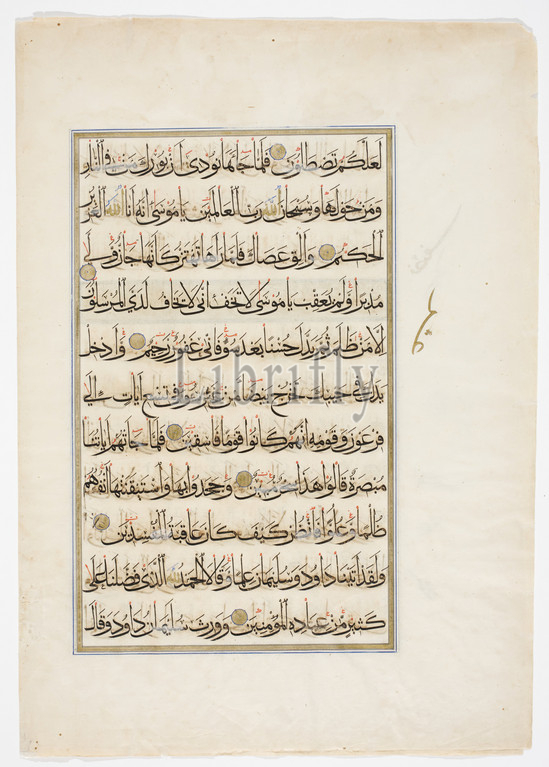 لعلكم تصطلون فلما جاءها نودي أن بورك من في النار
ومن حولها وسبحان الله رب العالمين يا موسى انه انا الله العزيز
الحكيم والق عصاك فلما راها تهتز كانها جان ولى
مدبرا ولم يعقب يا موسى لا تخف اني لا يخاف لدي المرسلون
الا من ظلم ثم بدل حسنا بعد سوء فاني غفور رحيم وادخل
يدك في جيبك تخرج بيضاء من غير سوء في تسع آيات الى
فرعون وقومه انهم كانوا قوما فاسقين فلما جاءتهم اياتنا
مبصرة قالوا هذا سحر مبين وجحدوا بها واستيقنتها انفسهم
ظلما وعلوا فانظر كيف كان عاقبة المفسدين
ولقد اتينا داود وسليمان علما وقالا الحمد لله الذي فضلنا على
كثير من عباده المؤمنين وورث سليمان داود وقال
Librifly